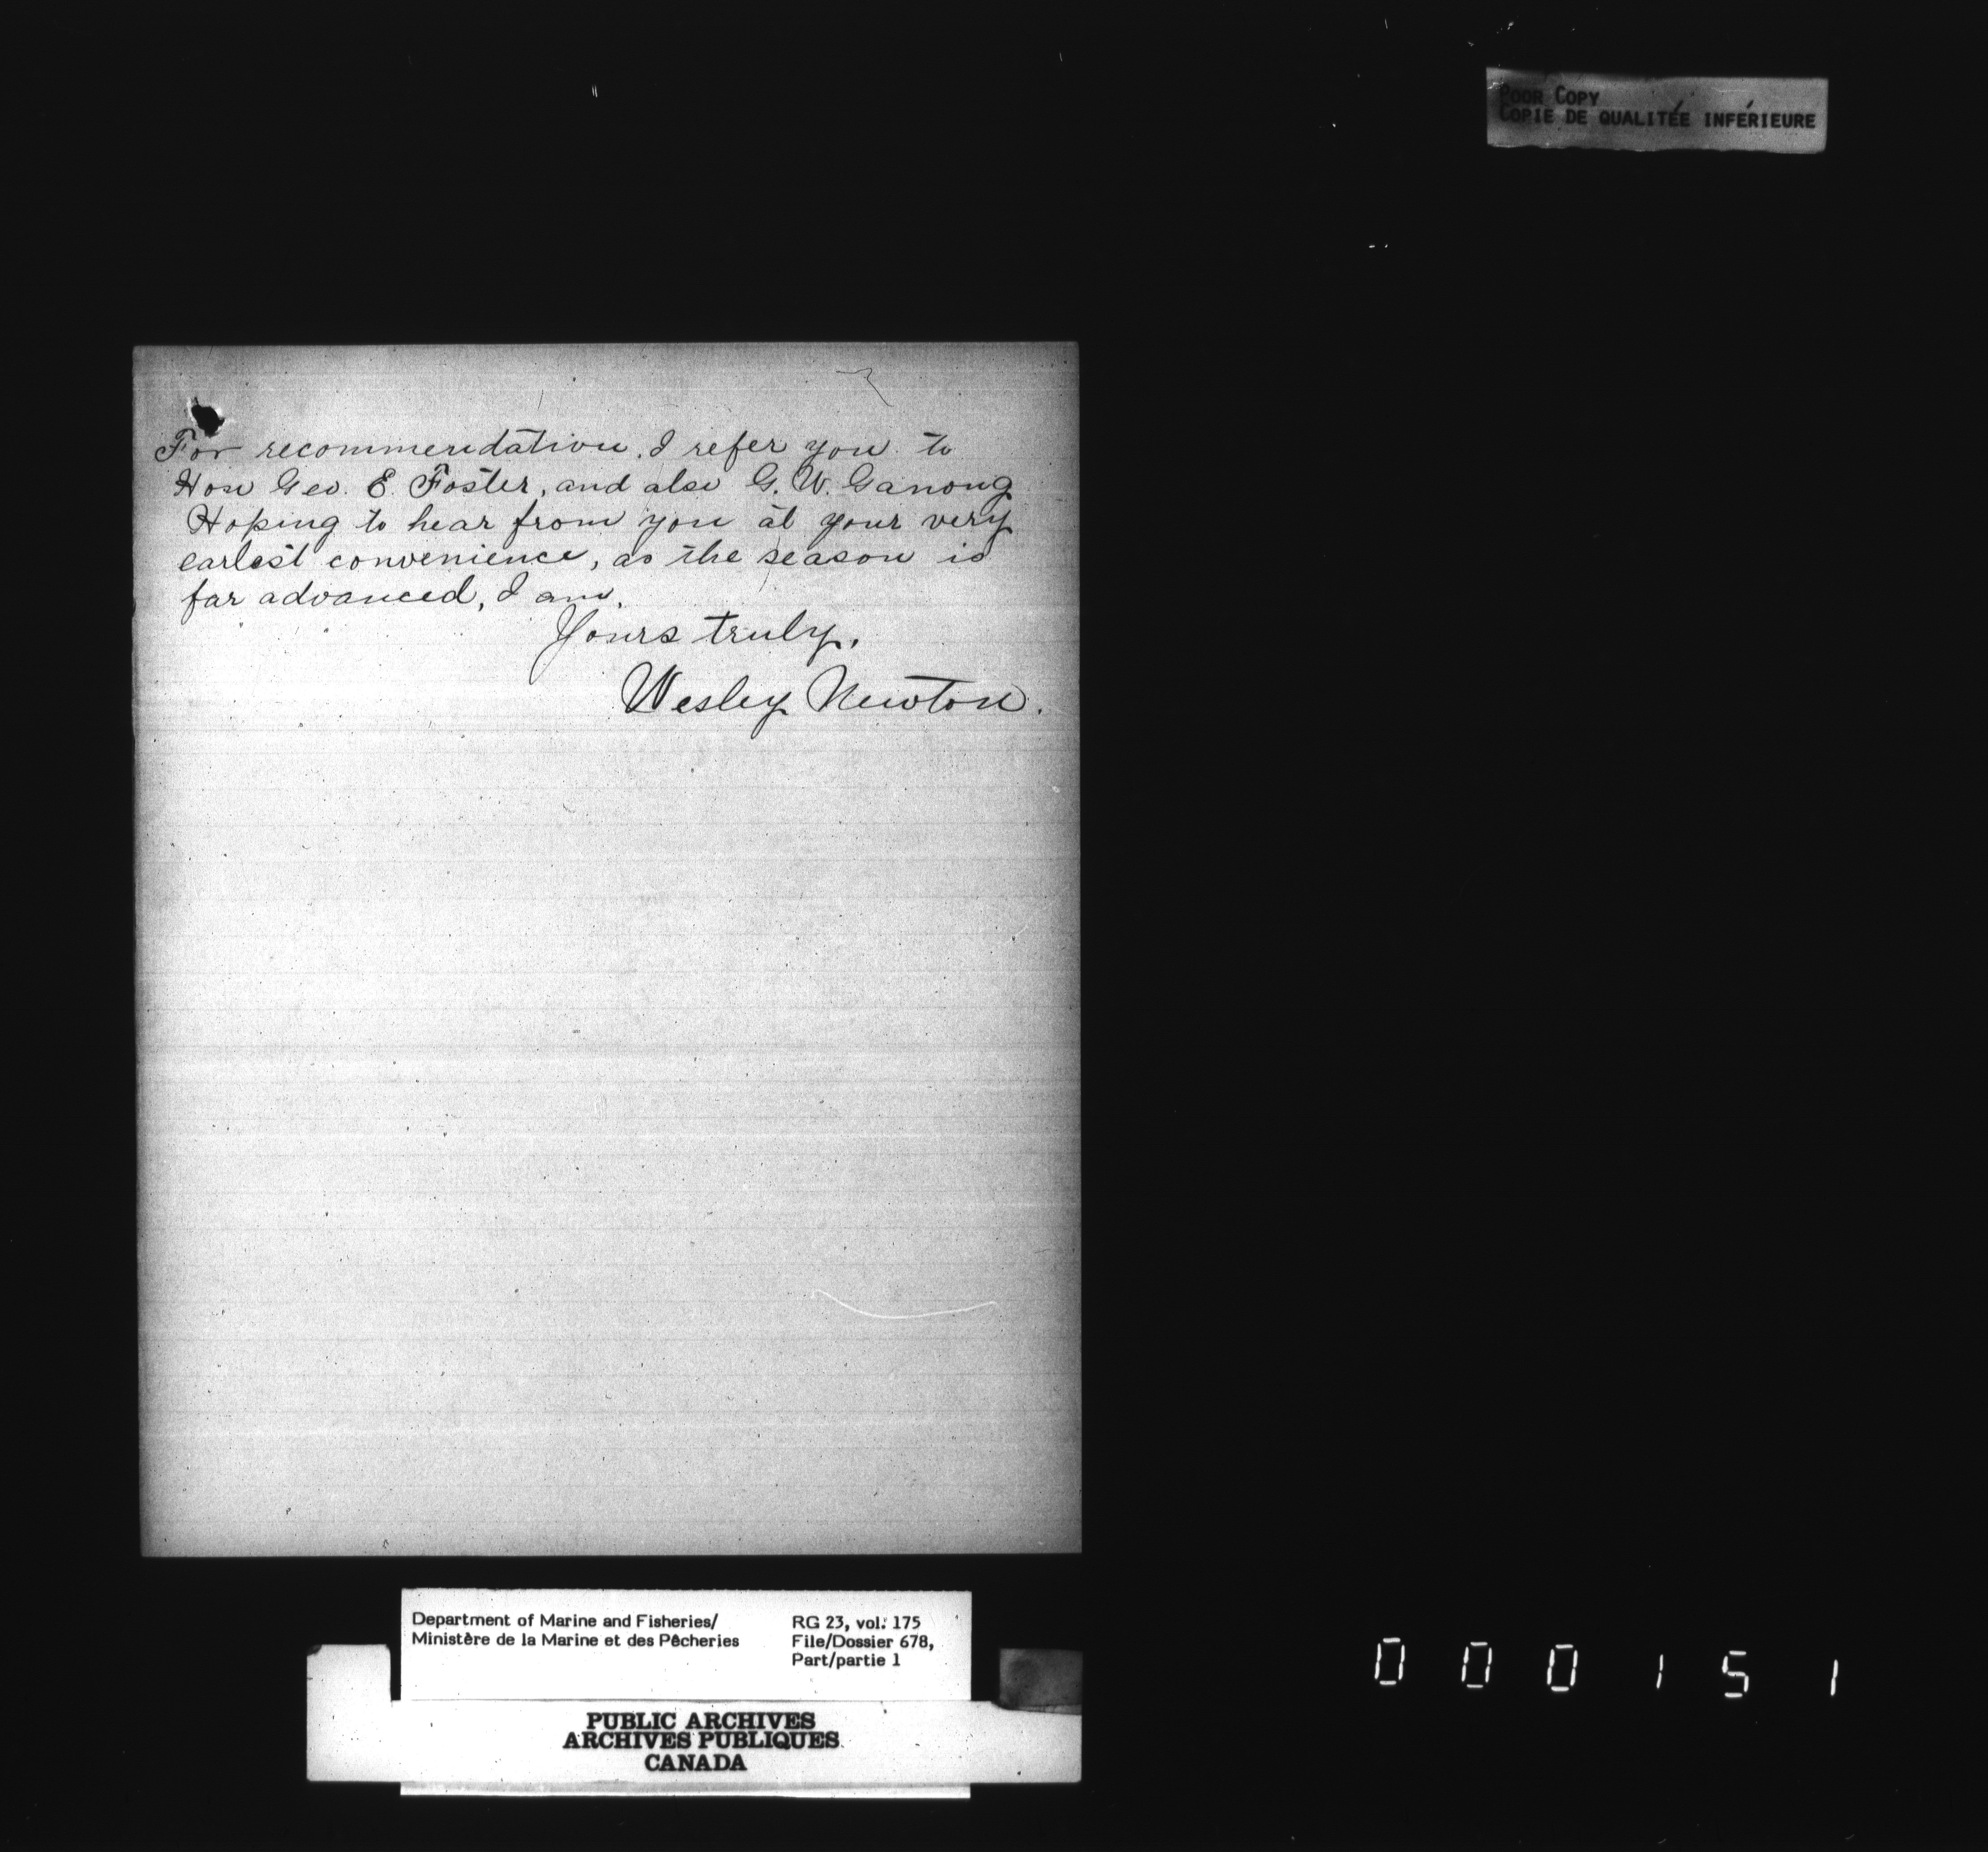 POOR COPY
COPIE DE QUALITÉE INFÉRIEURE
For recommendation, I refer you to
Hon Geo. E. Foster, and also G. W. Ganong
Hoping to hear from you at your very
earlest convenience, as the season is
far advanced, I am,
Yours truly,
Wesley Newton.
Department of Marine and Fisheries/
Ministère de la Marine et des Pêcheries
RG 23, vol. 175
File/Dossier 678,
Part/partie 1
PUBLIC ARCHIVES
ARCHIVES PUBLIQUES
CANADA
000151